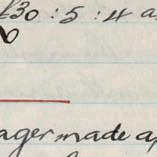 £30 : 5 : 4 a
ager made ap